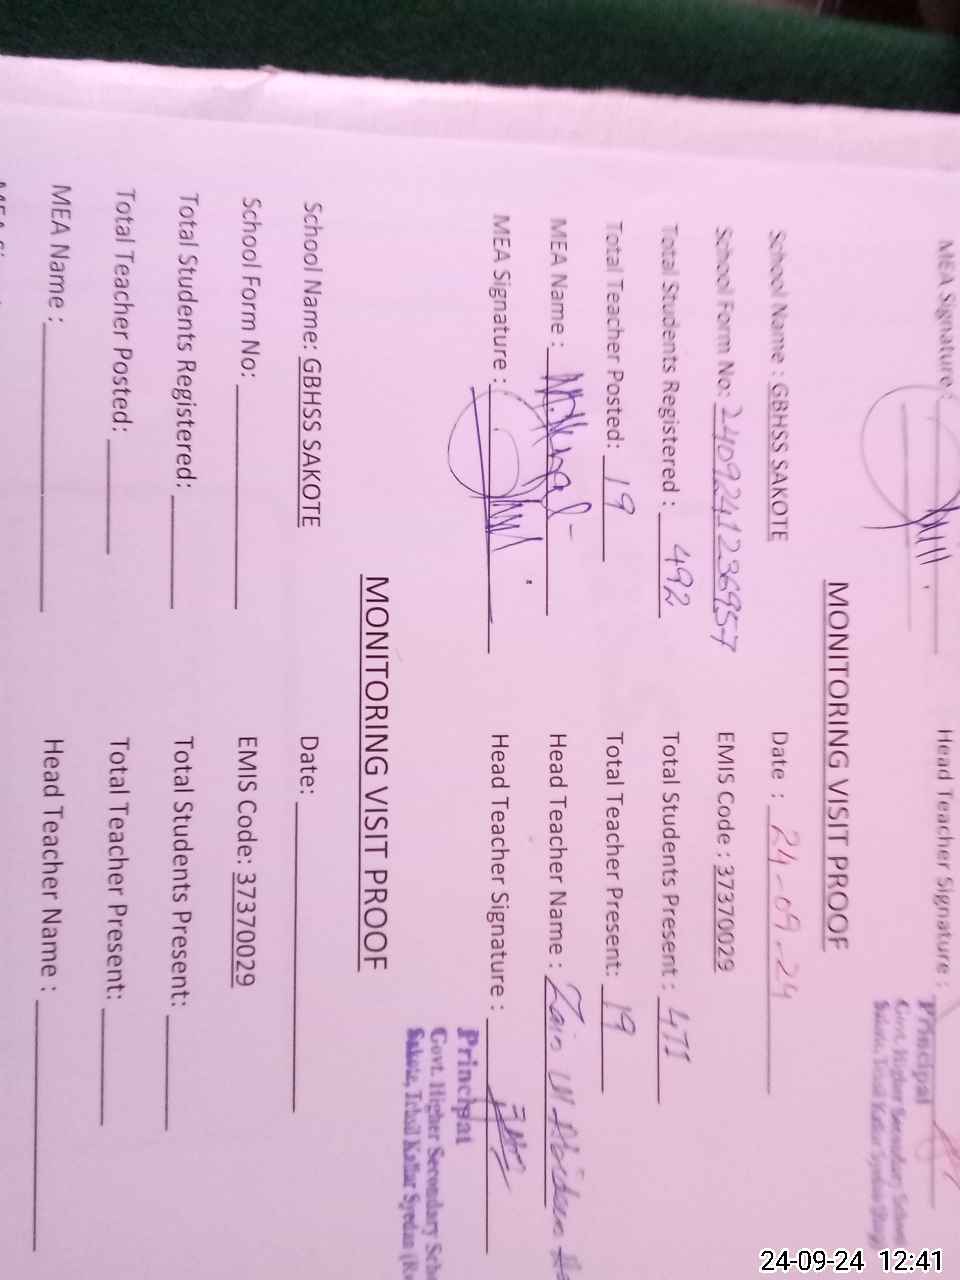 MEA Signature : Head Teacher Signature :
Principal
Govt. Higher Secondary School
Sakote, Tehsil Kallar Syedan
MONITORING VISIT PROOF
School Name : GBHSS SAKOTE Date : 24-09-24
School Form No: 2409241236957 EMIS Code : 37370029
Total Students Registered : 492 Total Students Present : 471
Total Teacher Posted: 19 Total Teacher Present: 19
MEA Name : Head Teacher Name : Zain Ul
MEA Signature : Head Teacher Signature :
Principal
Govt. Higher Secondary Scho
Sakote, Tehsil Kallar Syedan (R
MONITORING VISIT PROOF
School Name: GBHSS SAKOTE Date:
School Form No: EMIS Code: 37370029
Total Students Registered: Total Students Present:
Total Teacher Posted: Total Teacher Present:
MEA Name : Head Teacher Name :
24-09-24 12:41